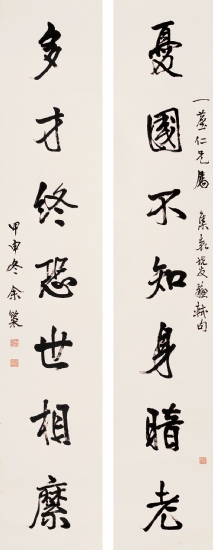 一廬仁兄屬 集 蘇軾句
憂國不知身暗老
多才終恐世相縻
甲申冬 余